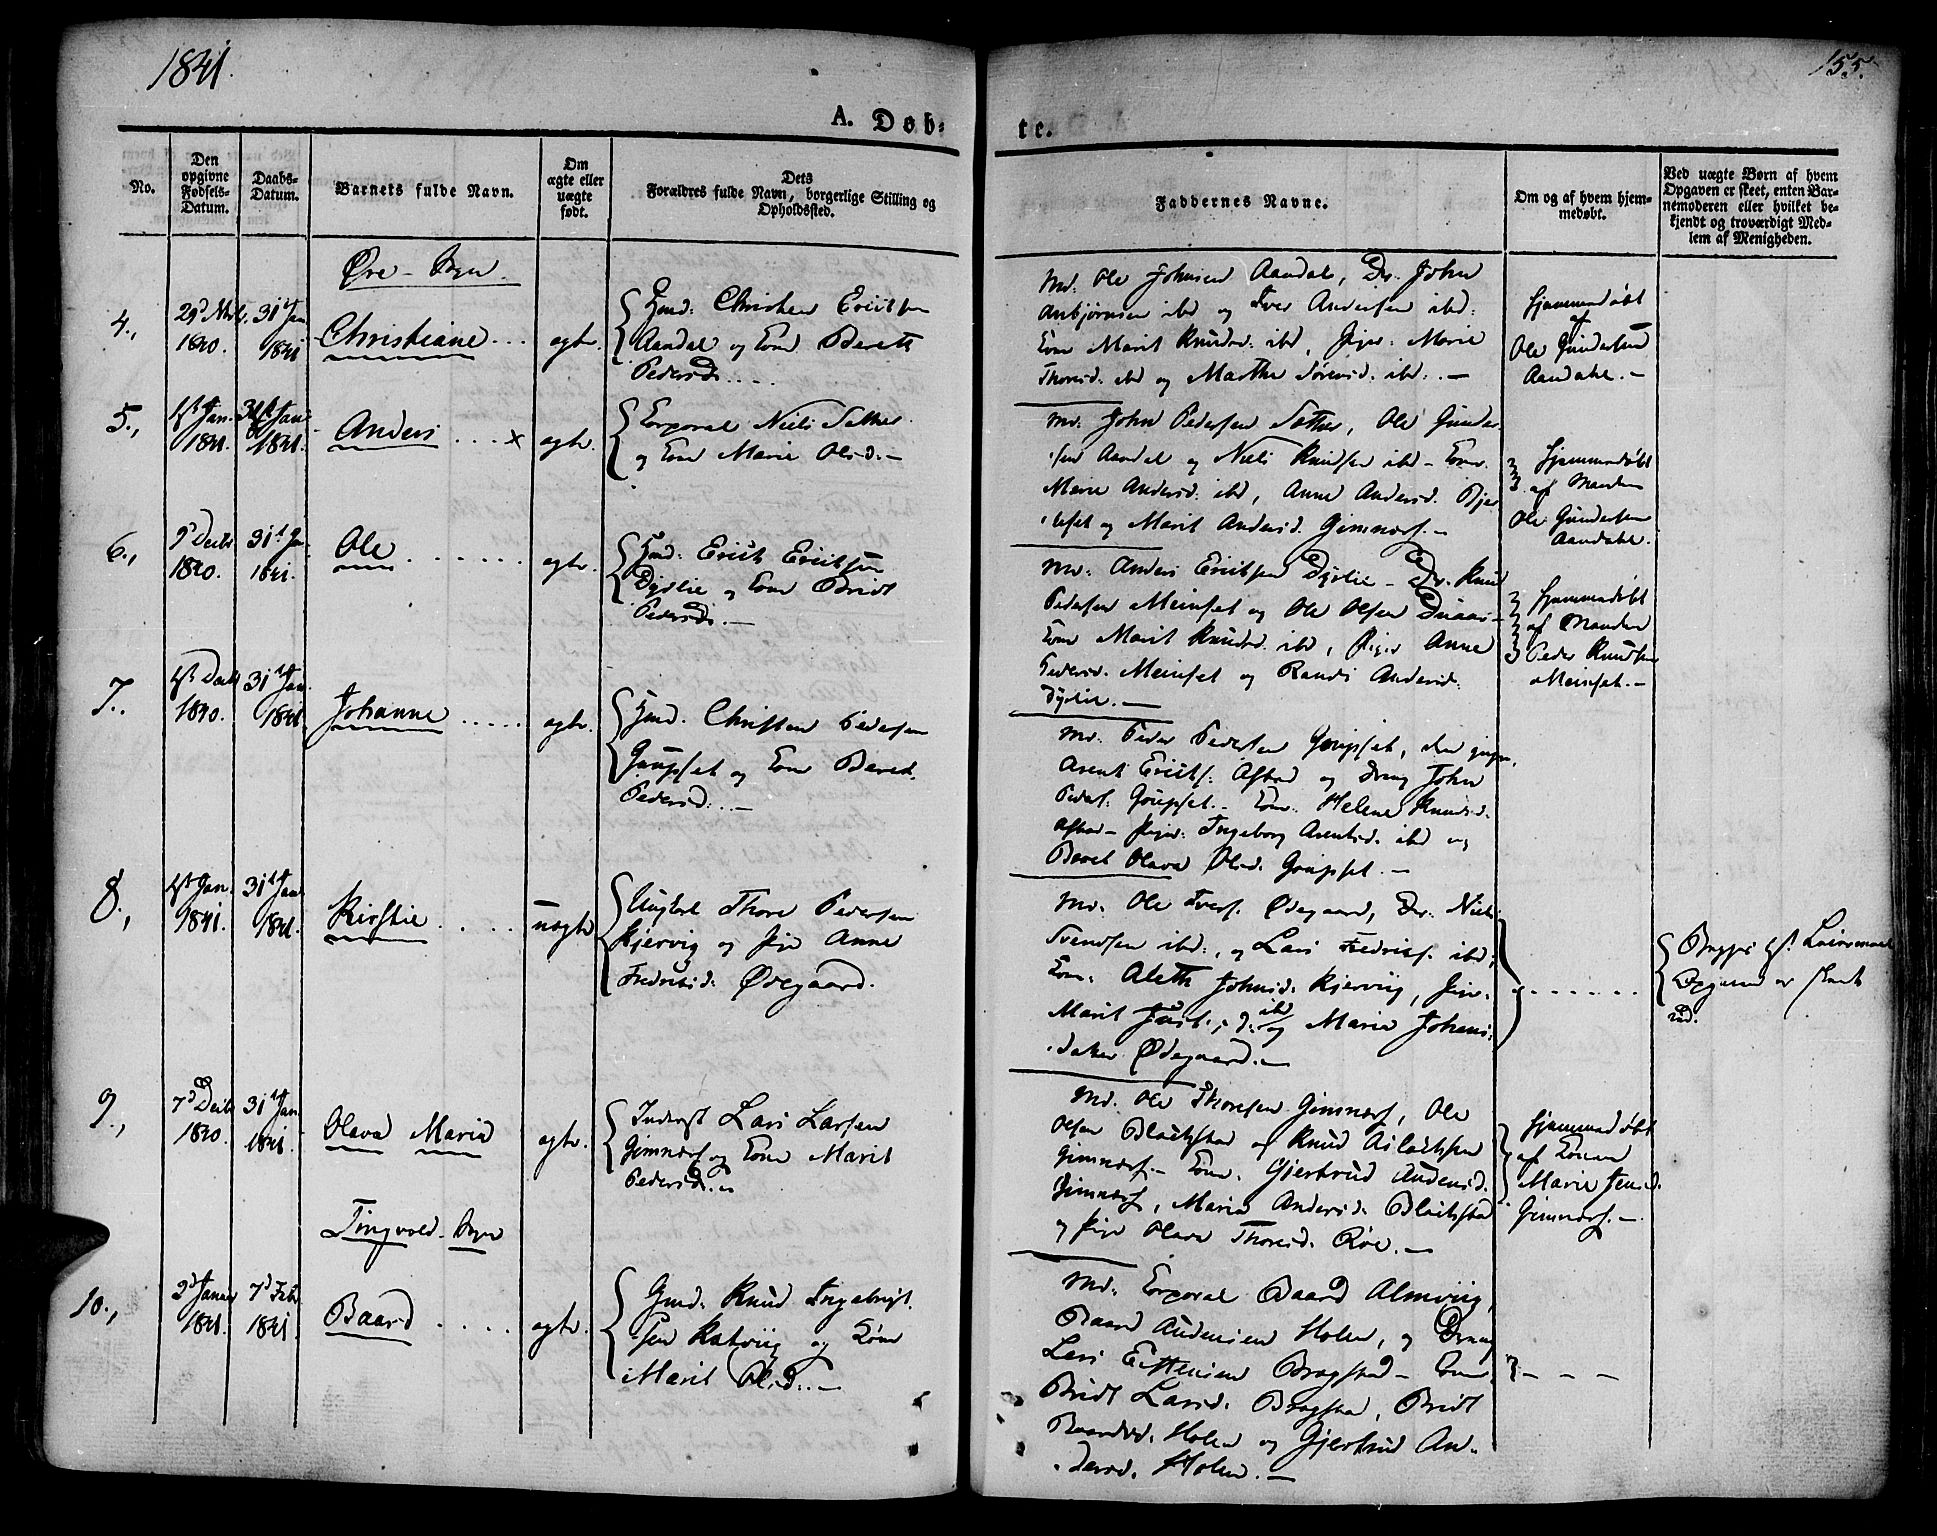 1841.
155.
A. Døb-
te.
No.
Den opgivne Fødsels-Datum.
Daabs-Datum.
Barnets fulde Navn.
Om ægte eller uægte født.
Dets Forældres fulde Navn, borgerlige Stilling og Opholdssted.
Faddernes Navne.
Om og af hvem hjemmedøbt.
Ved uægte Børn af hvem
Opgaven er skeet, enten Bar-
nemoderen eller hvilket be-
kjendt og troværdigt Med-
lem af Menigheden.
Øre - Sogn.
4., 31t Jan 1841 Christiane ... ægte.
1840.
Gmd. Christen Erichsen
Aandal og Kone Bereth
Pedersd. ...
Md. Ole Johnsen Aandal, Dr. John
Anbjørnsen ibd og Iver Andersen ibd.
Kone Marit Knudsd. ibd, Pige: Marie
Thoresd. ibd og Marthe Sørensd. ibd. —
Hjemmedøbt
af
Ole Gundersen
Aandahl. —
5., Jan. 1841. 31t Jan 1841. Anders ... x ægte.
Corporal Niels Sæther
og Kone Marie Olsd. —
Md. John Pedersen Sæther, Ole Gunder-
sen Aandal og Niels Knudsen ibd - Kone
Marie Andersd. ibd, Anne Andersd.
og Marit Andersd. Gimnæs. —
Hjemmedøbt
af Manden
Ole Gundersen
Aandahl.
6., 9d Decbr 1840. 31t Jan 1841. Ole ...... ægte.
Gmd. Erich Erichsen
Dyrlie og Kone Bridt
Pedersd. —
Md. Anders Erichsen Dyrlie - Dr. Knud
Pedersen Meinset og Ole Olsen
Kone Marit Knudsd. ibd, Piger Anne
Pedersd. Meinset og Randi Andersd.
Dyrlie. —
Hjemmedøbt
af Manden
Peder Knudsen
Meinset. —
7., Decbr 1840. 31t Jan. 1841 Johanne ..... ægte.
Gmd. Christen Pedersen
Gaupset og Kone Bereth
Pedersd. —
Md. Peder Pedersen Gaupset, den yngre,
Arent Erichs. Aftad og Dreng John
Peders. Gaupset - Kone. Helene Knudsd.
Aftad - Pige. Ingeborg Arentsd. ibd og
Beret Olava Olsd. Gaupset. —
8., Jan. 1841. 31t Jan 1841. Kirstie ..... uægte
Ungkarl Thore Pedersen
Kjervig og Pige Anne
Fredriksd. Ødegaard.
Md. Ole Ivers. Ødegaard, Dr. Niels
Svendsen ibd., og Lars Fredriks. ibd;
Kone. Aleth Johnsd. Kjervig, Pige.
Marit ibd og Marie Johans-
datter Ødegaard. —
9., 7d Decbr 1840. 31t Jan. 1841. Olava Maria ægte.
Inderst Lars Larsen
Gimnæs og Kone Marit
Pedersd. —
Md. Ole Thoresen Gimnæs, Ole
Olsen Blachstad og Knud Aslachsen
Gimnæs - Kone. Gjertrud Andersd.
Gimnæs, Maria Andersd. Blachstad
og Pige Olava Thoresd. Røe. —
Hjemmedøbt
af Konen
Marie Jensd.
Gimnæs. —
Tingvold - Sogn
10., 2d Januar 1841. 7d Febr 1841. Baard ..... ægte.
Gmd. Knud Ingebrigt-
sen Ratvig og Kone
Marit Olsd. —
Md. Corporal Baard Almvig,
Baard Andersen Holen, og Dreng
Lars Estensen Bragstad - Kone
Bridt Larsd. Bragstad, Bridt
Baardsd. Holen og Gjertrud An-
dersd. Holen. —